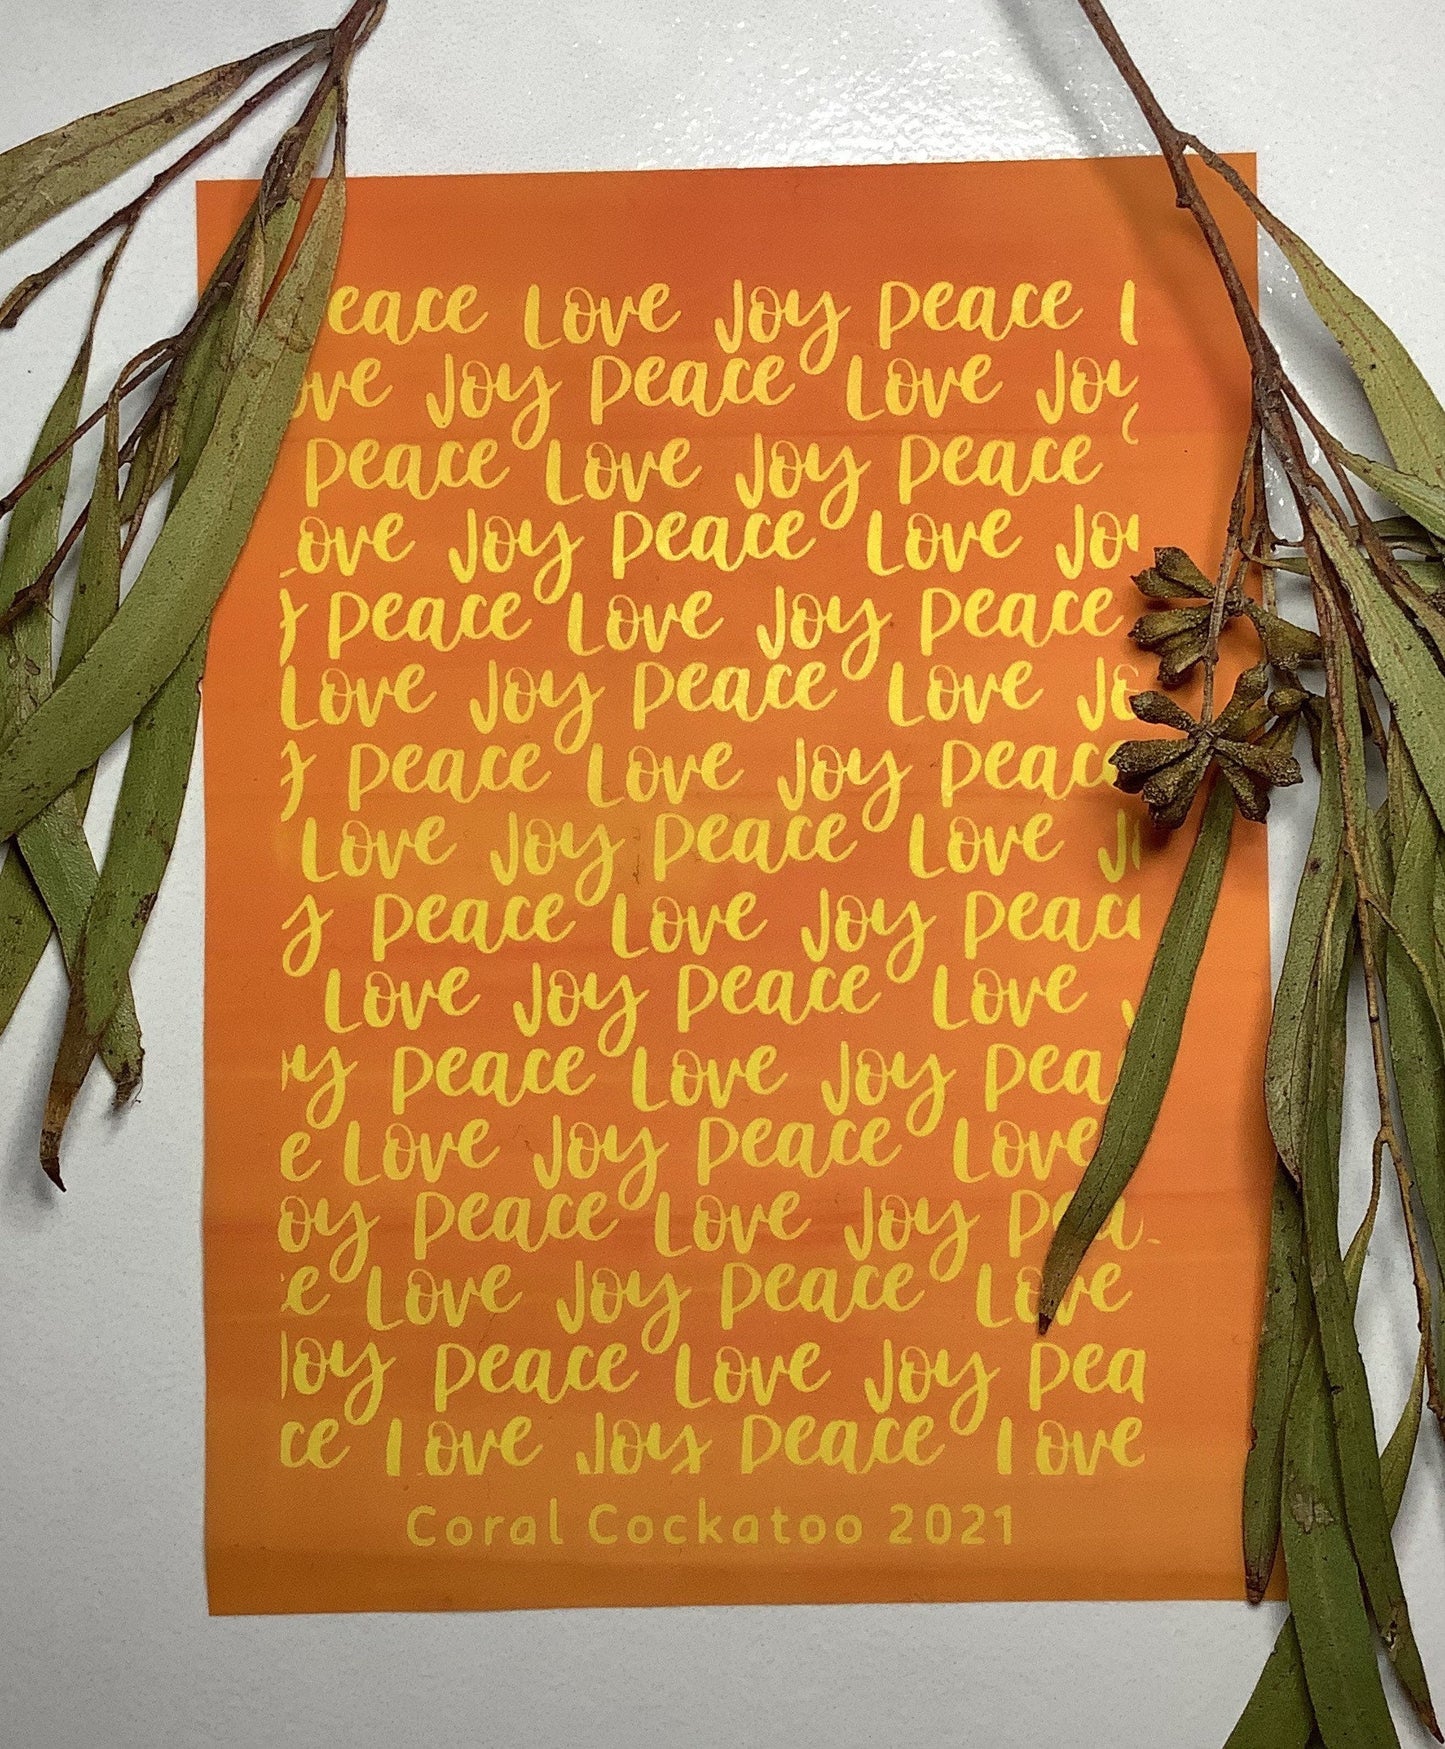 eace Love Joy Peace L
ove Joy Peace Love Joy
Peace Love Joy Peace
ove Joy Peace Love Joy
Peace Love Joy Peace
Love Joy Peace Love Jo
Peace Love Joy Peace
Love Joy Peace Love J
y Peace Love Joy Peace
Love Joy Peace Love
y Peace Love Joy Pea
e Love Joy Peace Love
oy Peace Love Joy Pea
e Love Joy Peace Love
Joy Peace Love Joy Pea
ce Love Joy Peace Love
Coral Cockatoo 2021